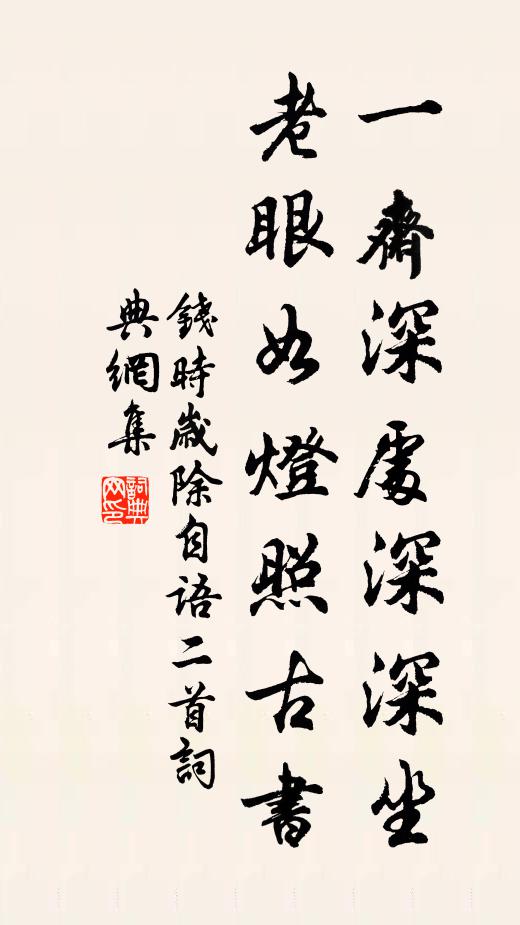 一齋深處深深坐
老眼如燈照古書
錢時歲除自语二首詞
典網集
詞典
网印